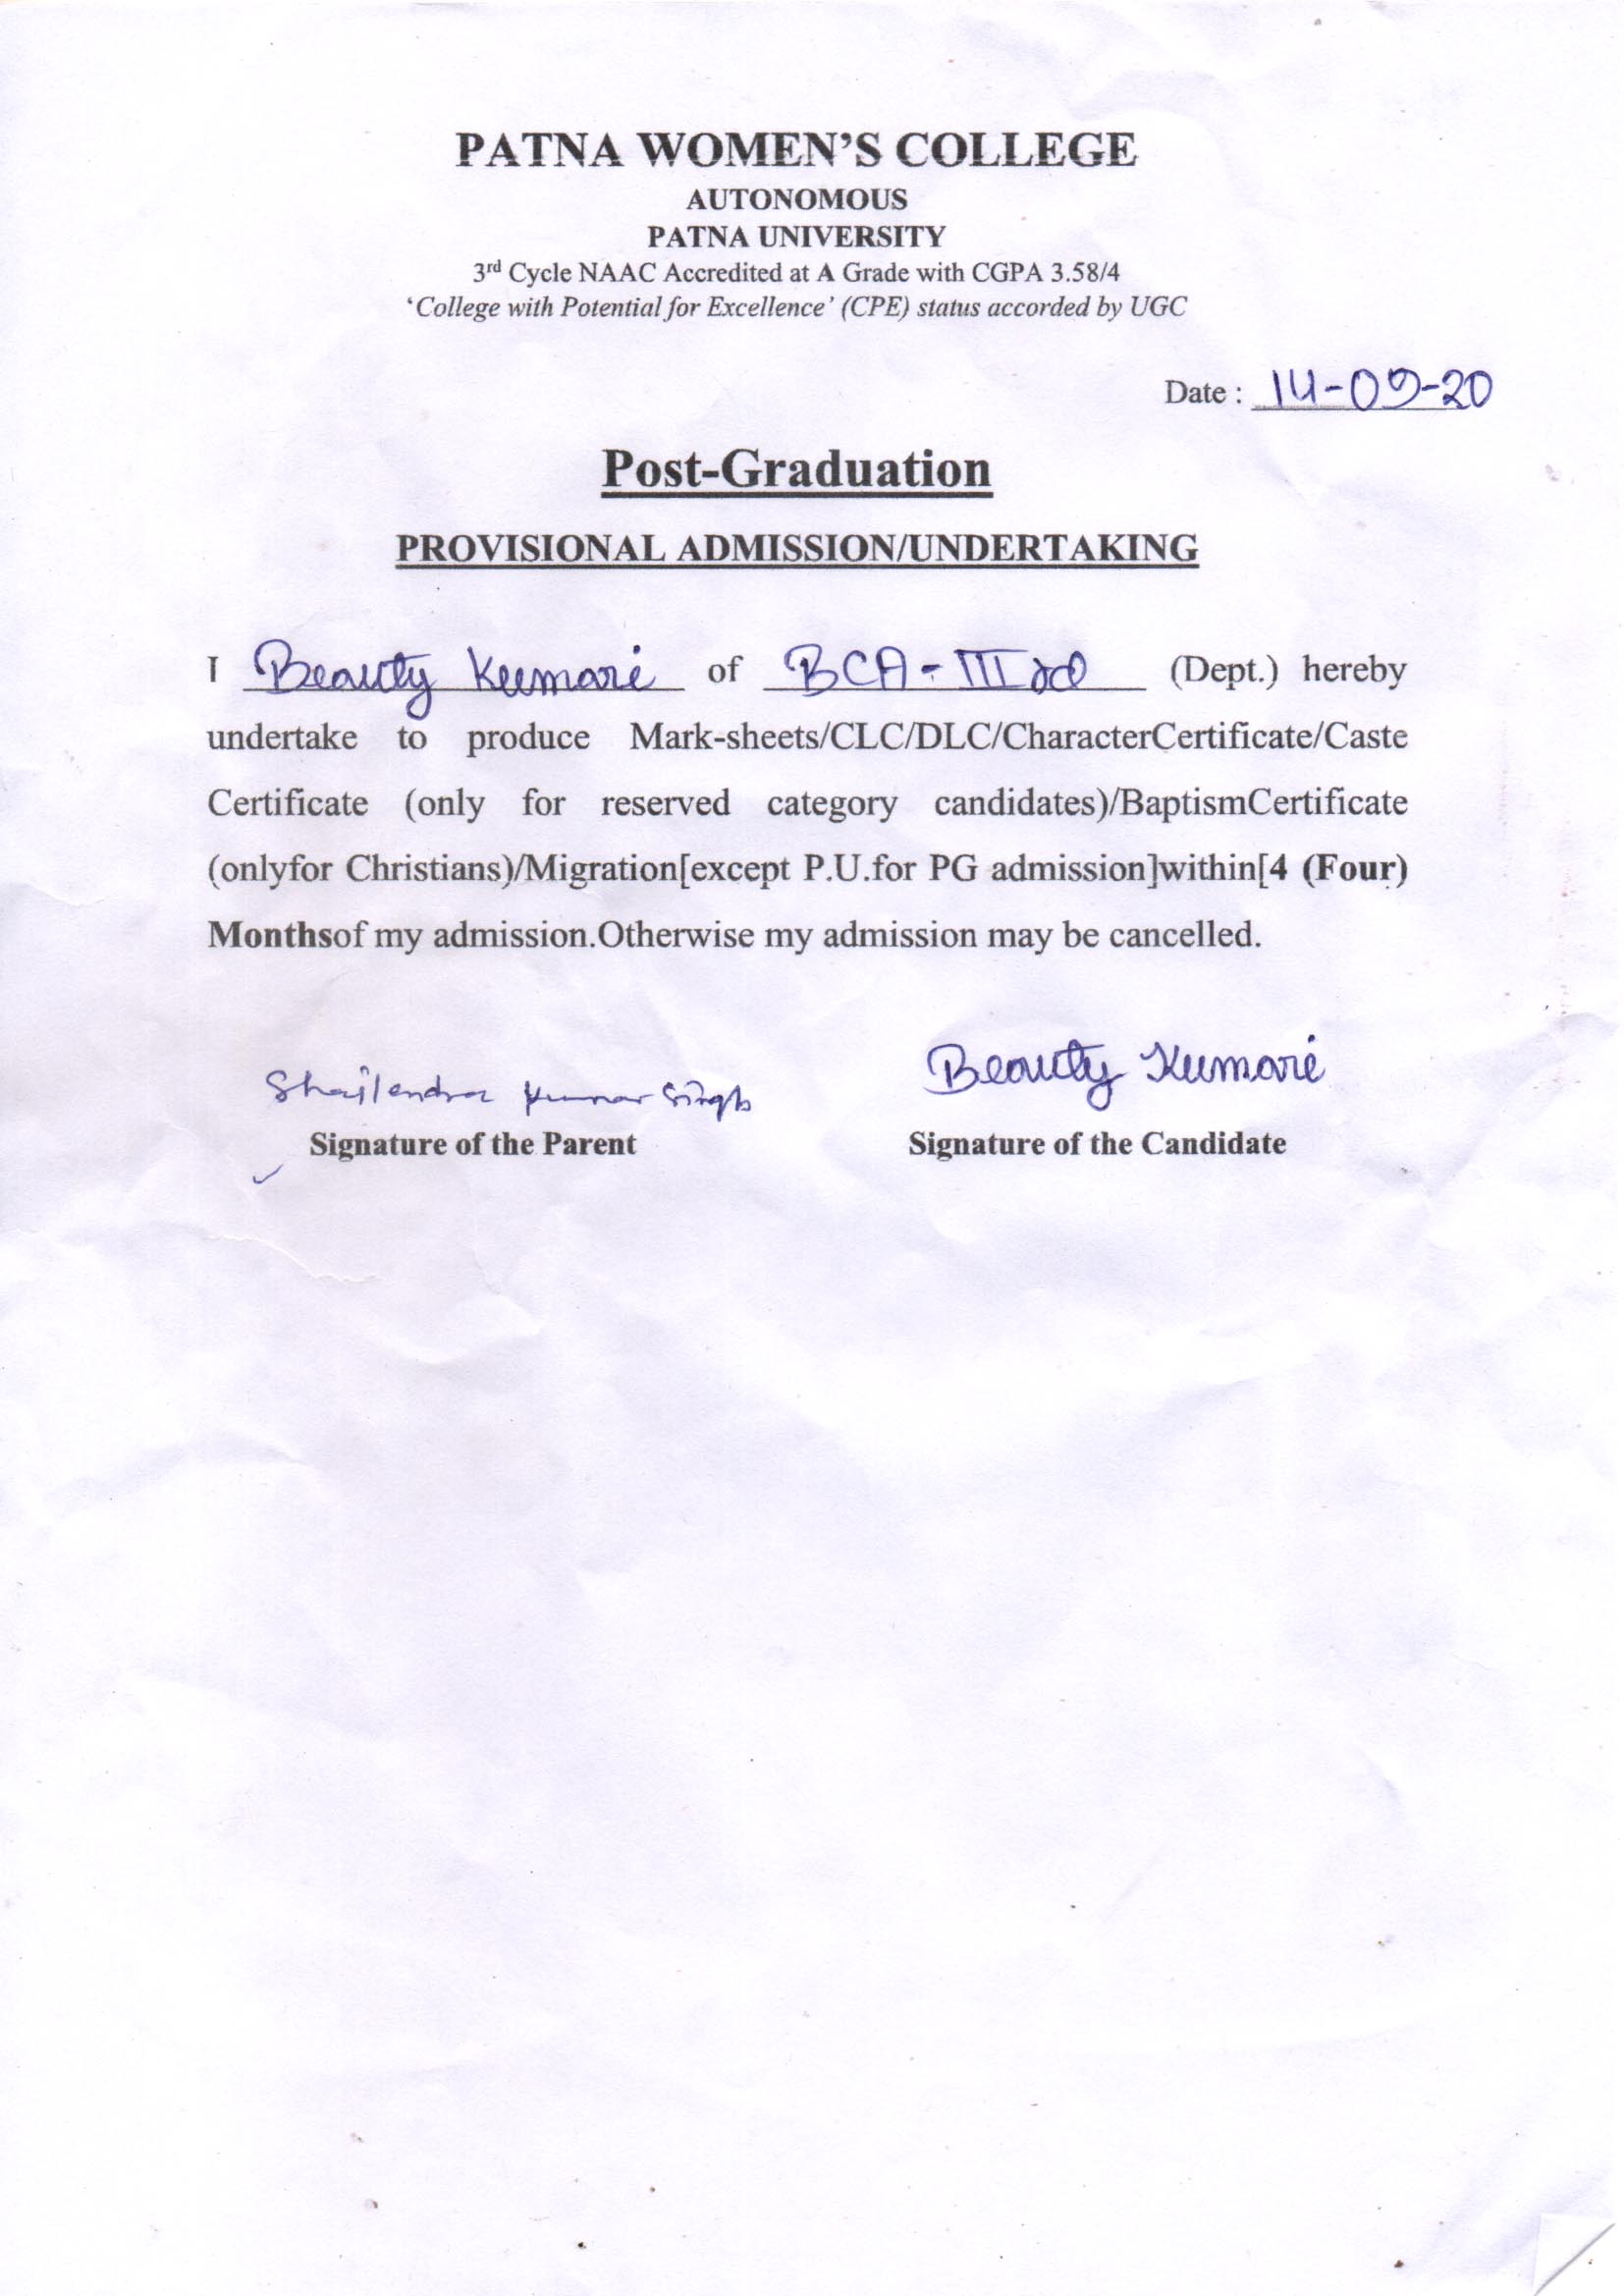 PATNA WOMEN'S COLLEGE
AUTONOMOUS
PATNA UNIVERSITY
3rd Cycle NAAC Accredited at A Grade with CGPA 3.58/4
'College with Potential for Excellence' (CPE) status accorded by UGC
Date : 14-09-20
Post-Graduation
PROVISIONAL ADMISSION/UNDERTAKING
I Beauty Kumari of BCA - III rd (Dept.) hereby
undertake to produce Mark-sheets/CLC/DLC/CharacterCertificate/Caste
Certificate (only for reserved category candidates)/BaptismCertificate
(onlyfor Christians)/Migration[except P.U.for PG admission]within[4 (Four)
Monthsof my admission.Otherwise my admission may be cancelled.
Shailendra Kumar Singh Beauty Kumari
Signature of the Parent Signature of the Candidate